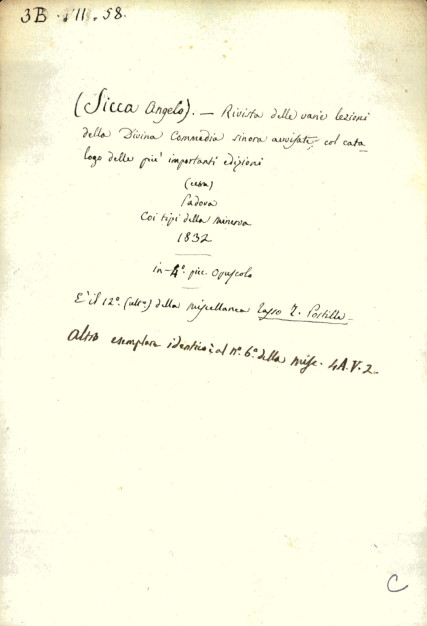 3B VII. 58.
(Sicca Angelo). — Rivista delle varie lezioni
della Divina Commedia sinora avvisate, col cata-
logo delle più importanti edizioni
Padova
Coi tipi della Minerva
1832
in-4º. picc. Opuscolo
E' il 12º. (ultº.) della miscellanea Tasso T. Postille -
Altro esemplare identico è al nº. 6º. della misc. 4A.V.2.
C